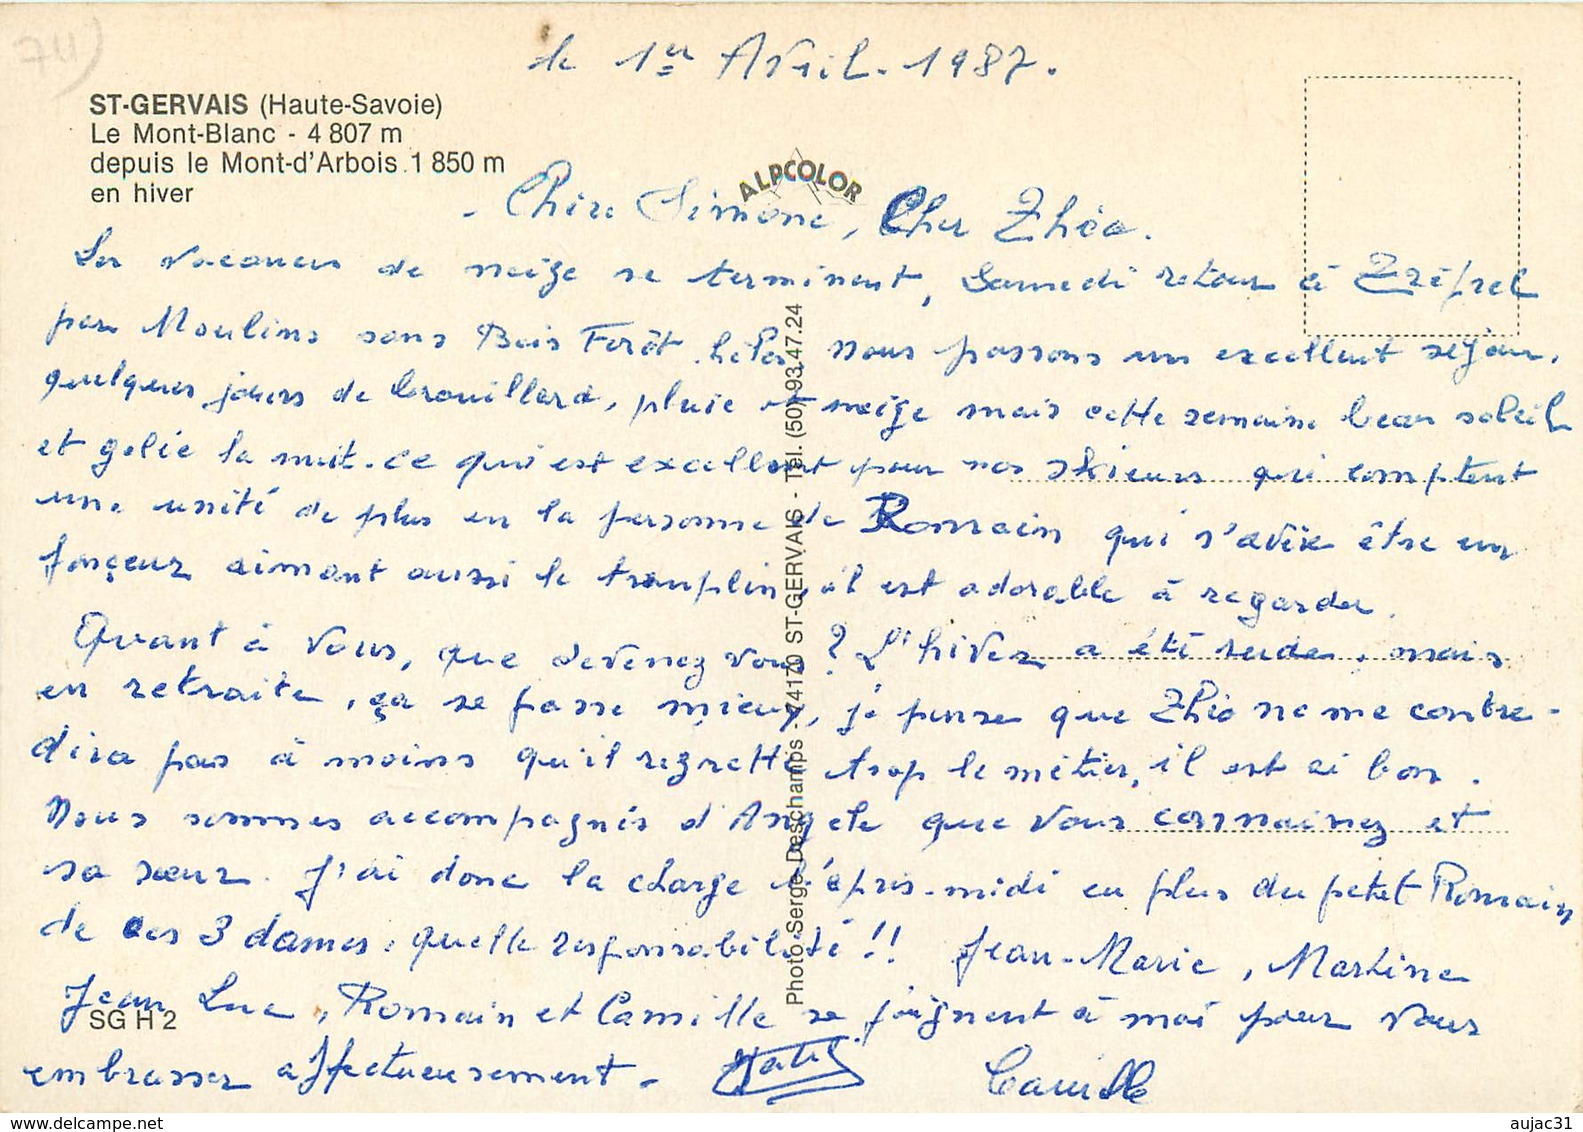 le 1er Avril. 1987.
ST-GERVAIS (Haute-Savoie)
Le Mont-Blanc - 4 807 m
depuis le Mont-d'Arbois 1 850 m
en hiver
ALPCOLOR
- Chère Simone, Cher Théo.
Les vacances de neige se terminent, Samedi retour à
par Moulins sans Bois Forêt hélas, nous passons un excellent séjour.
quelques jours de brouillard, pluie et neige mais cette semaine beau soleil
et gelée la nuit. ce qui est excellent pour nos skieurs qui comptent
une unité de plus en la personne de Romain qui s'avère être un
fonceur aimant aussi le tremplin, il est adorable à regarder.
Quant à vous, que devenez vous? L'hiver a été rude, mais
en retraite, ça se passe mieux, je pense que Théo ne me contre-
dira pas à moins qu'il regrette trop le métier, il est si bon.
Nous sommes accompagnés d'Angèle que vous connaissez et
sa sœur. J'ai donc la charge l'après-midi en plus du petit Romain
de ces 3 dames, quelle responsabilité!! Jean-Marie, Martine
Jean Luc, Romain et Camille se joignent à moi pour vous
embrasser affectueusement -
Camille
Photo Serge Deschamps - 74170 ST-GERVAIS - Tél. (50) 93.47.24
SG H 2
delcampe.net
aujac31